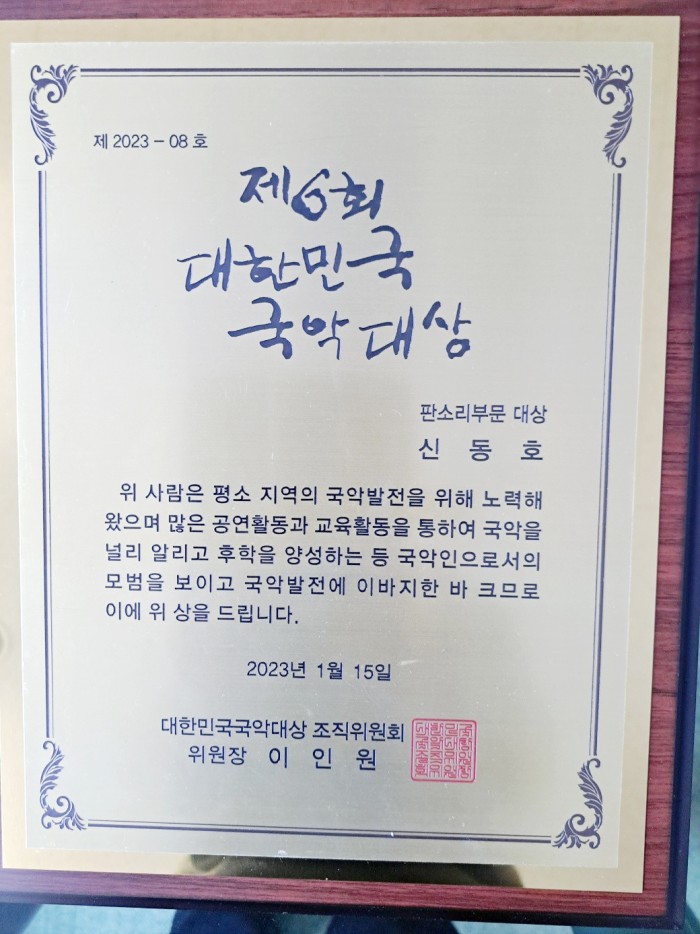 제 2023 - 08 호
제6회
대한민국
국악대상
판소리부문 대상
신 동 호
위 사람은 평소 지역의 국악발전을 위해 노력해
왔으며 많은 공연활동과 교육활동을 통하여 국악을
널리 알리고 후학을 양성하는 등 국악인으로서의
모범을 보이고 국악발전에 이바지한 바 크므로
이에 위 상을 드립니다.
2023년 1월 15일
대한민국국악대상 조직위원회
위원장 이 인 원